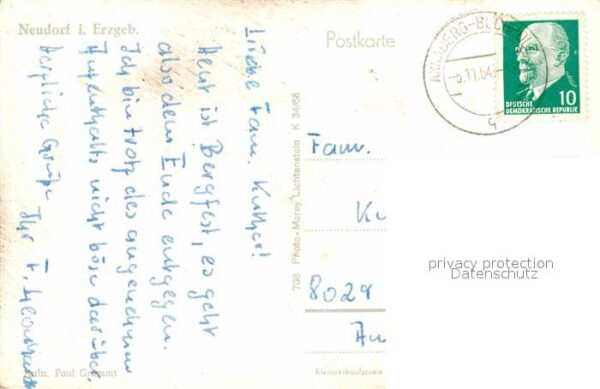 Neudorf i. Erzgeb.
Postkarte
ANNABERG-BUCH
-5.11.64
DEUTSCHE
DEMOKRATISCHE REPUBLIK
10
Liebe Fam.
Heut ist Bergfest, es geht
also dem Ende entgegen.
Ich bin trotz des angenehmen
Aufenthalts nicht böse darüber.
Herzliche Grüße
Ihr F.
Fam.
8029
708 Photo-Maroy Lichtenstein K 34/58
Aufn. Paul
Kleinverkaufspreis
privacy protection
Datenschutz